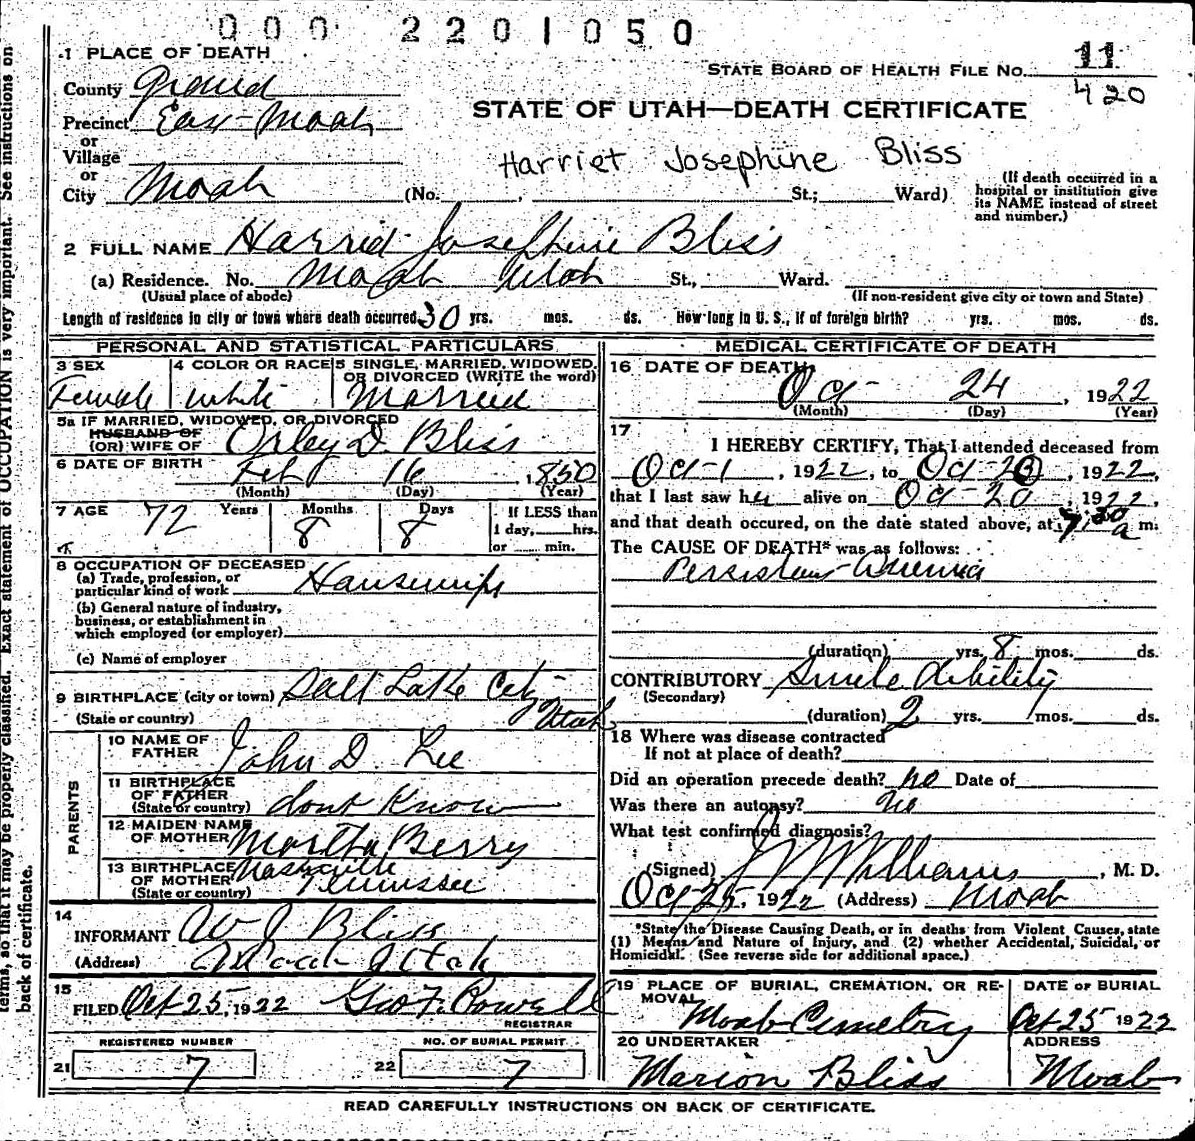 000 2201050
1 PLACE OF DEATH
STATE BOARD OF HEALTH FILE NO. 11
420
County Grand
STATE OF UTAH—DEATH CERTIFICATE
Precinct East Moab
or
Village
Harriet Josephine Bliss
or
City Moab (No. , St.; Ward)
(If death occurred in a hospital or institution give its NAME instead of street and number.)
2 FULL NAME Harriet Josephine Bliss
(a) Residence. No. Moab Utah St., Ward.
(Usual place of abode) (If non-resident give city or town and State)
Length of residence in city or town where death occurred 30 yrs. mos. ds. How long in U. S., if of foreign birth? yrs. mos. ds.
PERSONAL AND STATISTICAL PARTICULARS
3 SEX Female
4 COLOR OR RACE White
5 SINGLE, MARRIED, WIDOWED, OR DIVORCED (WRITE the word) Married
5a IF MARRIED, WIDOWED, OR DIVORCED
HUSBAND OF
(OR) WIFE OF Orley D. Bliss
6 DATE OF BIRTH Feb 16 1850
(Month) (Day) (Year)
7 AGE 72 Years 8 Months 8 Days
If LESS than
1 day, hrs.
or min.
8 OCCUPATION OF DECEASED
(a) Trade, profession, or
particular kind of work Housewife
(b) General nature of industry,
business, or establishment in
which employed (or employer)
(c) Name of employer
9 BIRTHPLACE (city or town) Salt Lake City
(State or country) Utah
PARENTS
10 NAME OF
FATHER John D. Lee
11 BIRTHPLACE
OF FATHER
(State or country) dont Know
12 MAIDEN NAME
OF MOTHER Martha Berry
13 BIRTHPLACE
OF MOTHER Nashville
(State or country) Tennessee
14
INFORMANT W J Bliss
(Address) Moab Utah
15
FILED Oct 25, 1922 Geo F. Powell
REGISTRAR
REGISTERED NUMBER
21 7
NO. OF BURIAL PERMIT
22 7
MEDICAL CERTIFICATE OF DEATH
16 DATE OF DEATH
Oct 24, 1922
(Month) (Day) (Year)
17
I HEREBY CERTIFY, That I attended deceased from
Oct 1, 1922, to Oct 23, 1922,
that I last saw her alive on Oct 20, 1922,
and that death occured, on the date stated above, at 7:30 a m.
The CAUSE OF DEATH* was as follows:
(duration) yrs. 8 mos. ds.
CONTRIBUTORY Senile Debility
(Secondary)
(duration) 2 yrs. mos. ds.
18 Where was disease contracted
If not at place of death?
Did an operation precede death? no Date of
Was there an autopsy? no
What test confirmed diagnosis?
(Signed) J W Williams, M. D.
Oct 25, 1922 (Address) Moab
*State the Disease Causing Death, or in deaths from Violent Causes, state
(1) Means and Nature of Injury, and (2) whether Accidental, Suicidal, or
Homicidal. (See reverse side for additional space.)
19 PLACE OF BURIAL, CREMATION, OR RE-
MOVAL Moab Cemetry
DATE OF BURIAL
Oct 25 1922
20 UNDERTAKER
Marion Bliss
ADDRESS
Moab
READ CAREFULLY INSTRUCTIONS ON BACK OF CERTIFICATE.
terms, so that it may be properly classified. Exact statement of OCCUPATION is very important. See instructions on
back of certificate.